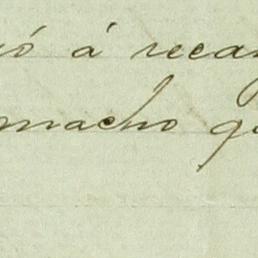 ió á recay
macho qu